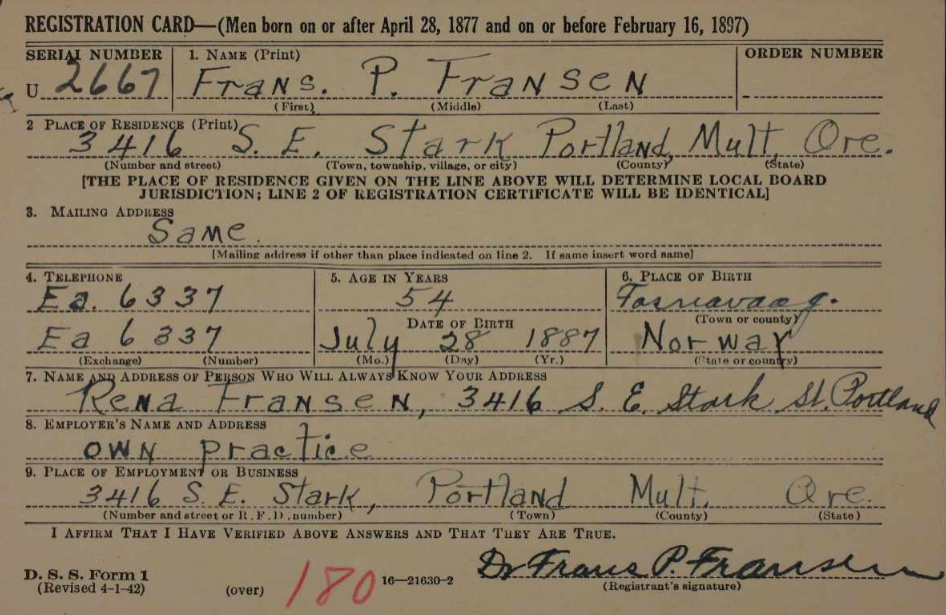 REGISTRATION CARD—(Men born on or after April 28, 1877 and on or before February 16, 1897)
SERIAL NUMBER 1. NAME (Print) ORDER NUMBER
U 2667 Frans. P. Fransen
(First) (Middle) (Last)
2 PLACE OF RESIDENCE (Print)
3416 S. E. Stark Portland, Mult. Ore.
(Number and street) (Town, township, village, or city) (County) (State)
[THE PLACE OF RESIDENCE GIVEN ON THE LINE ABOVE WILL DETERMINE LOCAL BOARD
JURISDICTION; LINE 2 OF REGISTRATION CERTIFICATE WILL BE IDENTICAL]
3. MAILING ADDRESS
Same.
[Mailing address if other than place indicated on line 2. If same insert word same]
4. TELEPHONE 5. AGE IN YEARS 6. PLACE OF BIRTH
Ea. 6337 54 Fosnavaag.
DATE OF BIRTH (Town or county)
Ea 6337 July 28 1887 Norway
(Exchange) (Number) (Mo.) (Day) (Yr.) (State or country)
7. NAME AND ADDRESS OF PERSON WHO WILL ALWAYS KNOW YOUR ADDRESS
Rena Fransen, 3416 S. E. Stark St. Portland
8. EMPLOYER'S NAME AND ADDRESS
own practice
9. PLACE OF EMPLOYMENT OR BUSINESS
3416 S. E. Stark, Portland Mult. Ore.
(Number and street or R. F. D. number) (Town) (County) (State)
I AFFIRM THAT I HAVE VERIFIED ABOVE ANSWERS AND THAT THEY ARE TRUE.
Dr Frans P. Fransen
D. S. S. Form 1
(Revised 4-1-42) (over) 180 16—21630-2 (Registrant's signature)